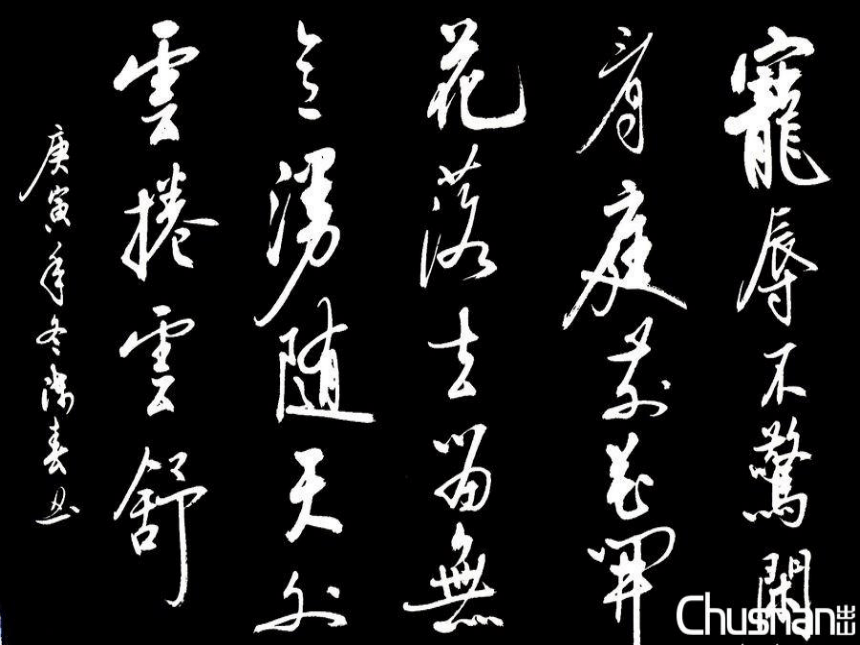 寵辱不驚閑
看庭前花開
花落去留無
意漫随天外
雲捲雲舒
庚寅年冬春书
Chushan